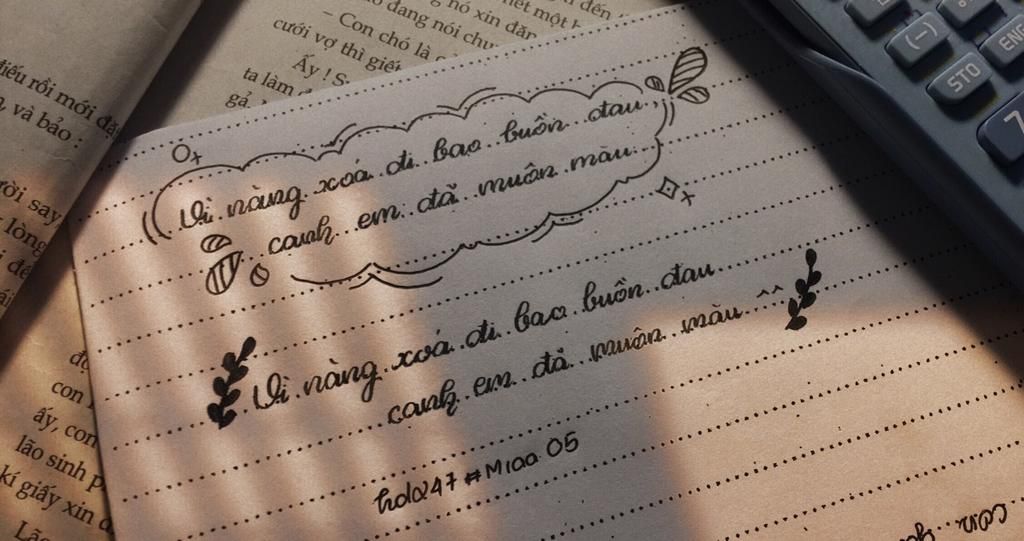 điếu rồi mới đặ
và bảo :
rời say
lòng
nó xin đăn
đang nói chu
– Con chó là c
cưới vợ thì giết
Ấy ! S
ta làm đ
gả.
Vì nàng xoá đi bao buồn đau
canh em đã muôn màu
Vì nàng xoá đi bao buồn đau
canh em đã muôn màu ^^
hda247 #Miaa 05
con
ấy, con
lão sinh p
kí giấy xin đ
Lão
(-)
STO
ENG
7